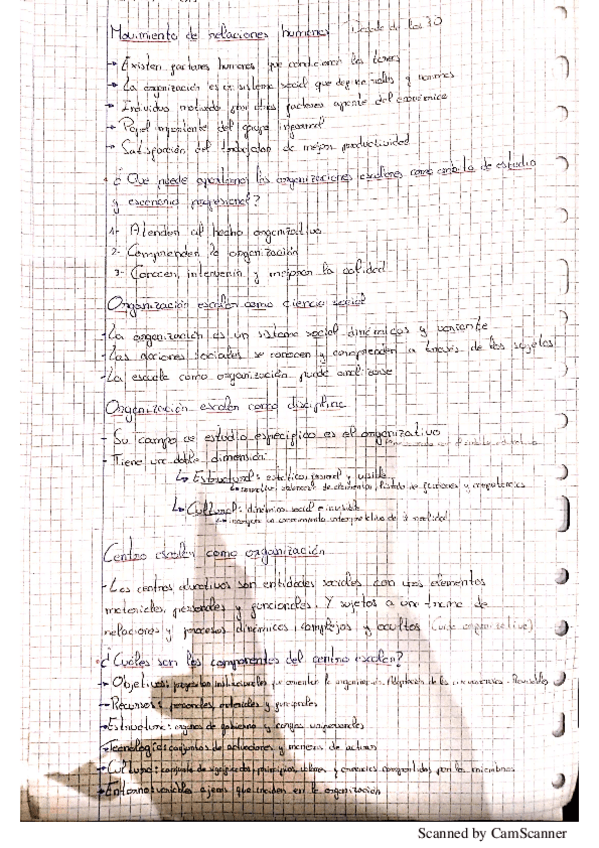 Movimiento de relaciones humanas Desde de los 30
→ Existen factores humanos que condicionan las tareas
→ La organización es un sistema social que depende roles y normas
→ Individuo motivado por otros factores aparte del económico
→ Papel importante del grupo informal
→ Satisfacción del trabajador da mejor productividad
• ¿Que puede aportarnos las organizaciones escolares como ámbito de estudio
y escenario profesional?
1- Atender al hecho organizativo
2- Comprender la organización
3- Conocer, intervenir y mejorar la calidad
Organización escolar como ciencia social
- La organización es un sistema social dinámicos y
- Las nociones sociales se conocen y comprenden a través de los sujetos
- La escuela como organización puede analizarse
Organización escolar como disciplina
- Su campo de estudio específico es el organizativo
- Tiene una doble dimensión:
↳ Estructural: estática, formal y visible
↳ de elementos, de funciones y competencias
↳ Cultural: dinámica social e invisible
↳ un conocimiento interpretativo de la realidad
Centro escolar como organización
- Los centros educativos son entidades sociales con unos elementos
materiales, personales y funcionales. Y sujetos a una trama de
relaciones y procesos dinámicos, complejos y ocultos
• ¿Cuáles son los componentes del centro escolar?
→ Objetivos: propósitos institucionales que orientan la organización. Adaptación de las
→ Recursos: personales, materiales y funcionales
→ Estructura: órganos de gobierno y cargos unipersonales
→ Tecnología: conjuntos de actuaciones y maneras de actuar
→ Cultura: conjunto de significados, principios, valores y creencias compartidas por los miembros
→ Entorno: variables ajenas que inciden en la organización
Scanned by CamScanner